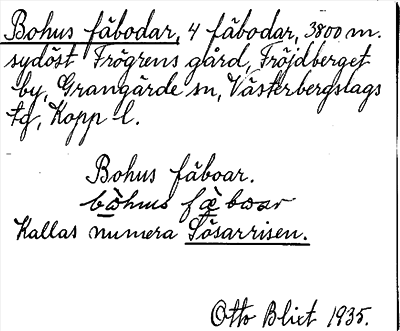 Bohus fäbodar, 4 fäbodar, 3800 m.
sydöst Frögrens gård, Fröjdberget
by, Grangärde sn, Västerbergslags
tg, Kopp l.
Bohus fäboar.
Kallas numera Sösarrisen.
Otto Blixt 1935.